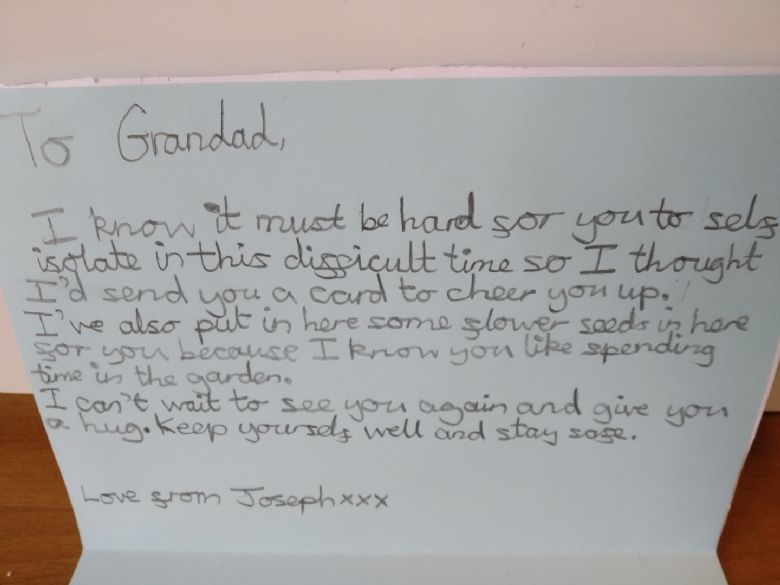 To Grandad,
I know it must be hard for you to self
isolate in this difficult time so I thought
I'd send you a card to cheer you up.
I've also put in here some flower seeds in here
for you because I know you like spending
time in the garden.
I can't wait to see you again and give you
a hug. Keep yourself well and stay safe.
Love from Joseph xxx